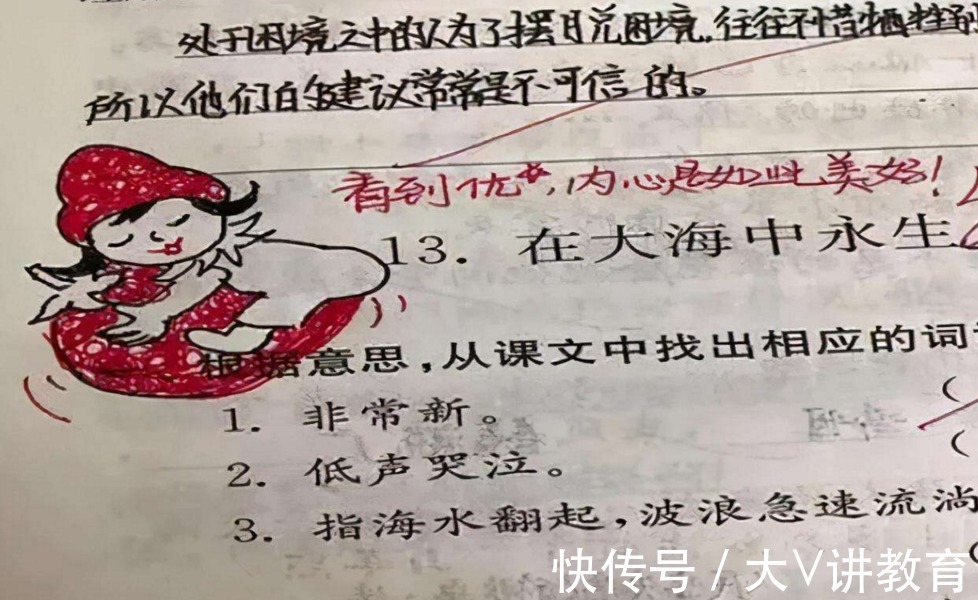 处于困境之中的人为了摆脱困境,往往不惜牺牲
所以他们的建议常常是不可信的。
看到优+,内心是如此美好!
13. 在大海中永生
根据意思,从课文中找出相应的词
1. 非常新。 (
2. 低声哭泣。 (
3. 指海水翻起,波浪急速流淌
快传号 / 大V讲教育